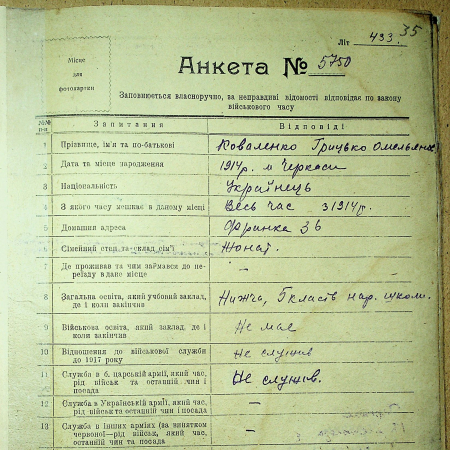 35
Літ 433.
Місце
для
фотокартки
Анкета № 5750
Заповнюється власноручно, за неправдиві відомості відповідає по закону
військового часу
№№
п-п
Запитання
Відповіді
1 Прізвище, ім'я та по-батькові Коваленко Грицько Омельянов
2 Дата та місце народження 1914 р. м Черкаси
3 Національність Українець
4 З якого часу мешкає в даному місці Весь час з 1914 р.
5 Домашня адреса Франка 36
6 Сімейний стан та склад сім'ї Жонат.
7 Де проживав та чим займався до пе-
реїзду в дане місце –
8 Загальна освіта, який учбовий заклад,
де і коли закінчив Нижча, 5 класів нар. школи.
9 Військова освіта, який заклад, де і
коли закінчив Не має
10 Відношення до військової служби
до 1917 року Не служив
11 Служба в б. царській армії, який час,
рід військ та останній чин і
посада Не служив.
12 Служба в Українській армії, який час,
рід військ та останній чин і посада –
13 Служба в інших арміях (за винятком
червоної—рід військ, який час,
останній чин та посада –